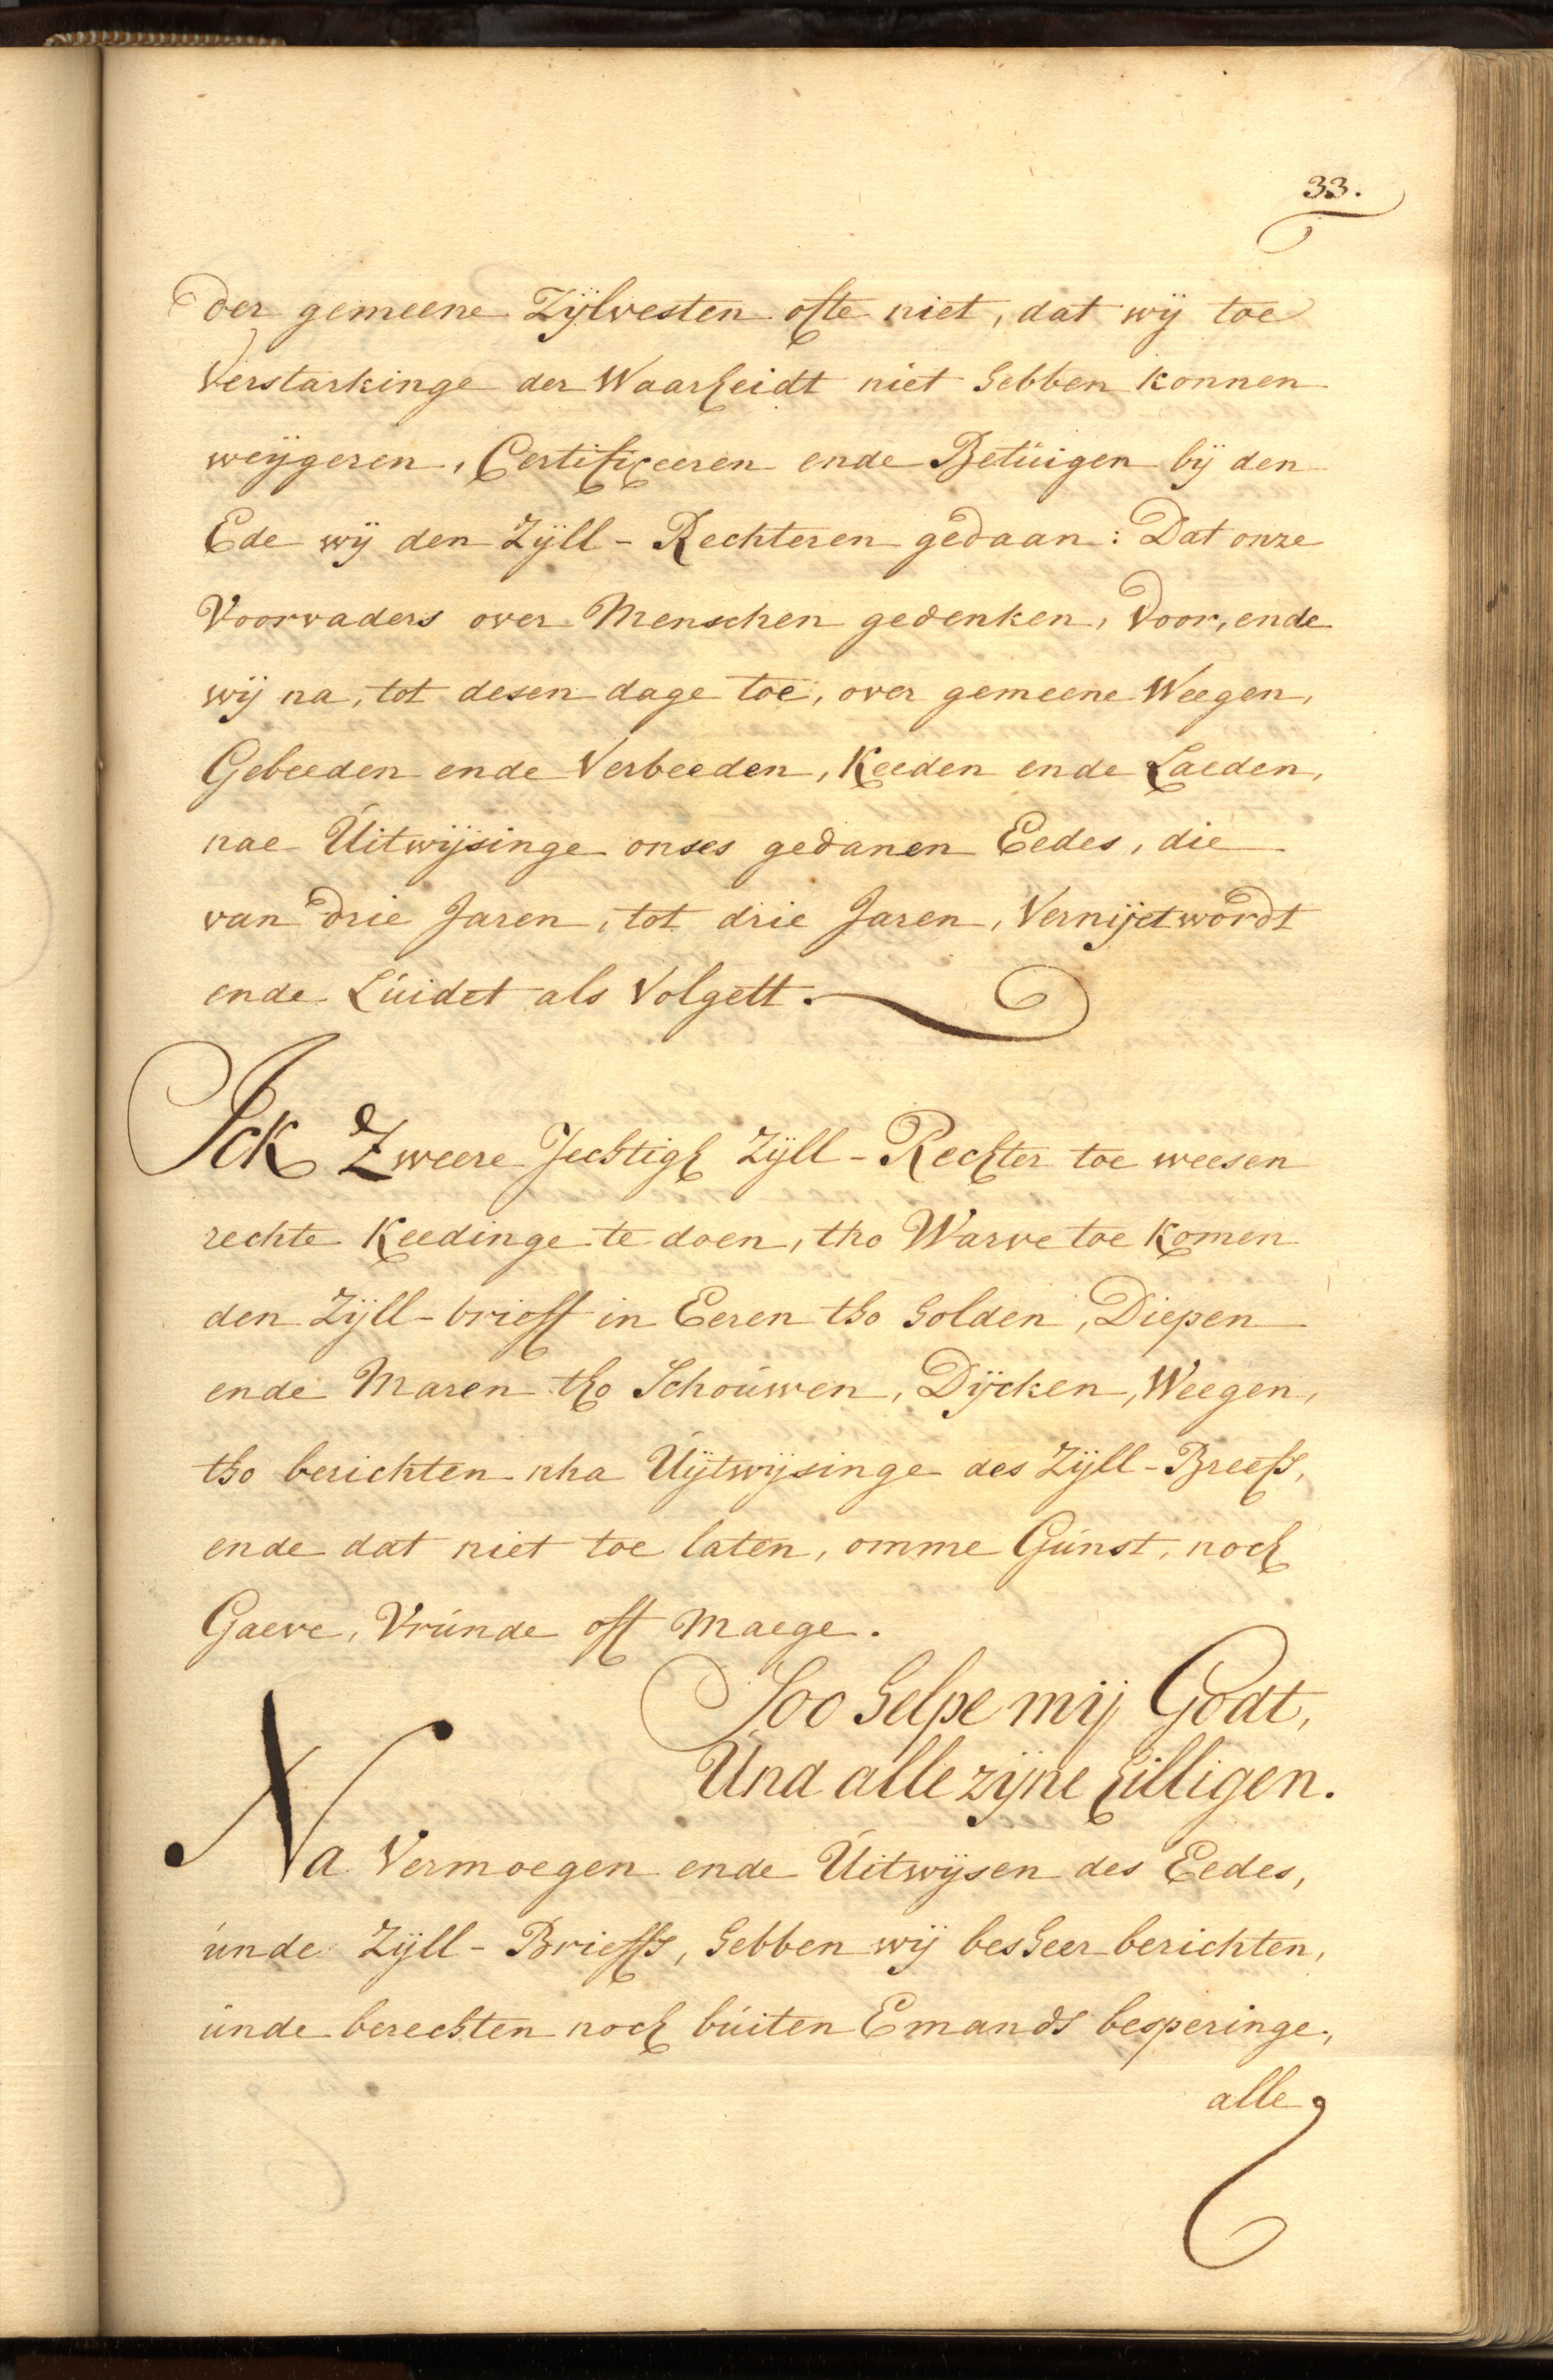 33.
der gemeene Zÿlvesten ofte niet, dat wÿ toe
Verstarkinge der Waarheidt niet hebben konnen
weÿgeren, Certificeeren ende Betuigen bÿ den
Ede wÿ den Zÿll-Rechteren gedaan: Dat onze
Voorvaders over Menschen gedenken, voor, ende
wÿ na, tot desen dage toe, over gemeene Weegen,
Gebeeden ende Verbeeden, Keeden ende Laeden,
nae Uitwÿsinge onses gedanen Eedes, die
van drie Jaren, tot drie Jaren, Vernijet wordt
ende Luidet als Volgett.
Ick Zweere Jechtigh Zÿll-Rechter toe weesen
rechte Keedinge te doen, tho Warve toe Komen
den Zÿll-brieff in Eeren tho holden, Diepen
ende Maren tho Schouwen, Dÿcken, Weegen,
tho berichten nha Uÿtwÿsinge des Zÿll-Breefs,
ende dat niet toe laten, omme Gunst, noch
Gaeve, Vrunde oft Maege.
Soo helpe mij Godt,
Und alle zijne hilligen.
Na Vermoegen ende Uitwÿsen des Eedes,
unde Zÿll-Brieffs, hebben wÿ besheer berichten,
unde berechten noch buiten Emands besperinge,
alle